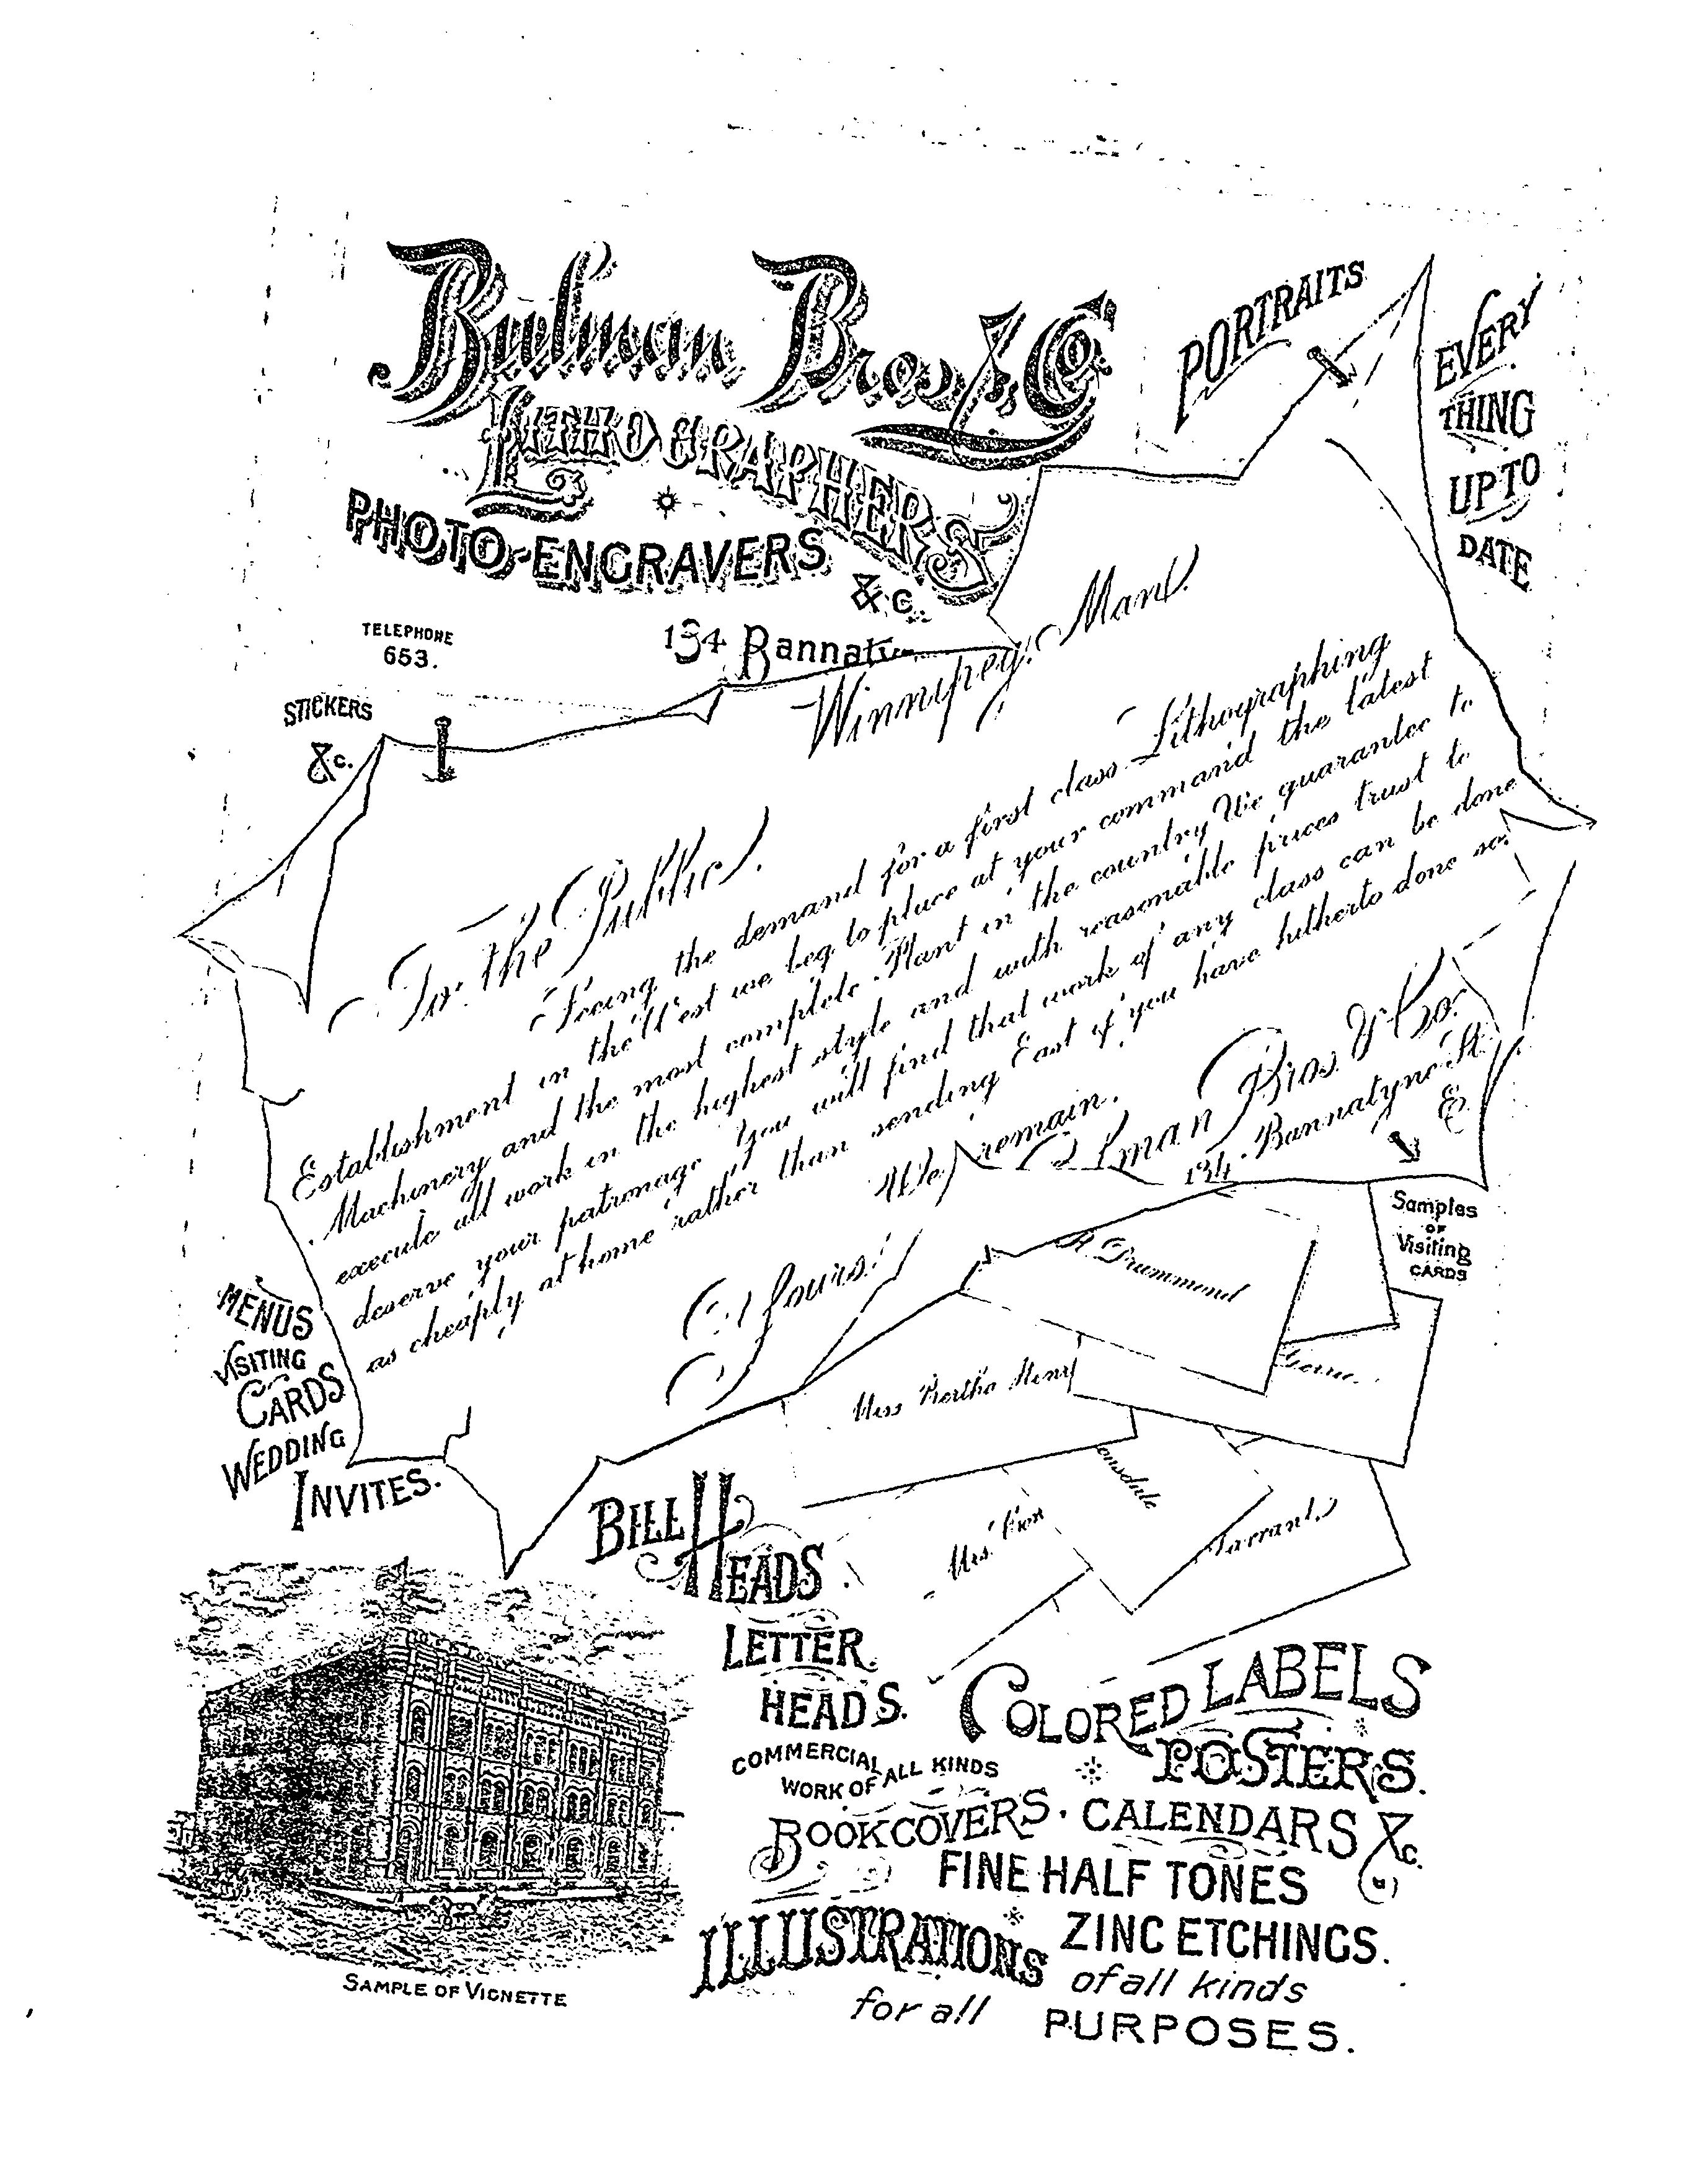 Bulman Bros & Co.
LITHOGRAPHERS
PHOTO-ENGRAVERS
&c.
PORTRAITS
EVERY
THING
UP TO
DATE
TELEPHONE
653.
134 Bannaty
Winnipeg, Man.
STICKERS
&c.
To the Public.
Seeing the demand for a first class Lithographing
Establishment in the West we beg to place at your command the latest
Machinery and the most complete Plant in the country We guarantee to
execute all work in the highest style and with reasonable prices trust to
deserve your patronage You will find that work of any class can be done
as cheaply at home rather than sending East if you have hitherto done so.
We remain.
Yours
lman Bros & Co.
134 Bannatyne St.
E.
Samples
OF
Visiting
CARDS
R. Drummond
Miss Bertha
Mrs.
onsdale
Tarrant
MENUS
VISITING
CARDS
WEDDING
INVITES.
BILL HEADS
LETTER
HEADS.
COMMERCIAL
WORK OF ALL KINDS
COLORED LABELS
POSTERS.
BOOKCOVERS. CALENDARS &c.
FINE HALF TONES
ILLUSTRATIONS
for all
ZINC ETCHINGS.
of all kinds
PURPOSES.
SAMPLE OF VIGNETTE